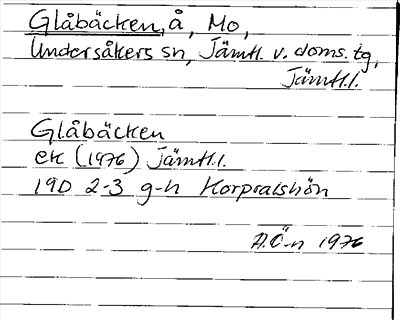 Glåbäcken, å, Mo,
Undersåkers sn, Jämtl. v. doms. tg,
Jämtl.l.
Glåbäcken
ek (1976) Jämtl.l.
19D 2-3 g-h Korpralshön
A.Ö-n 1976